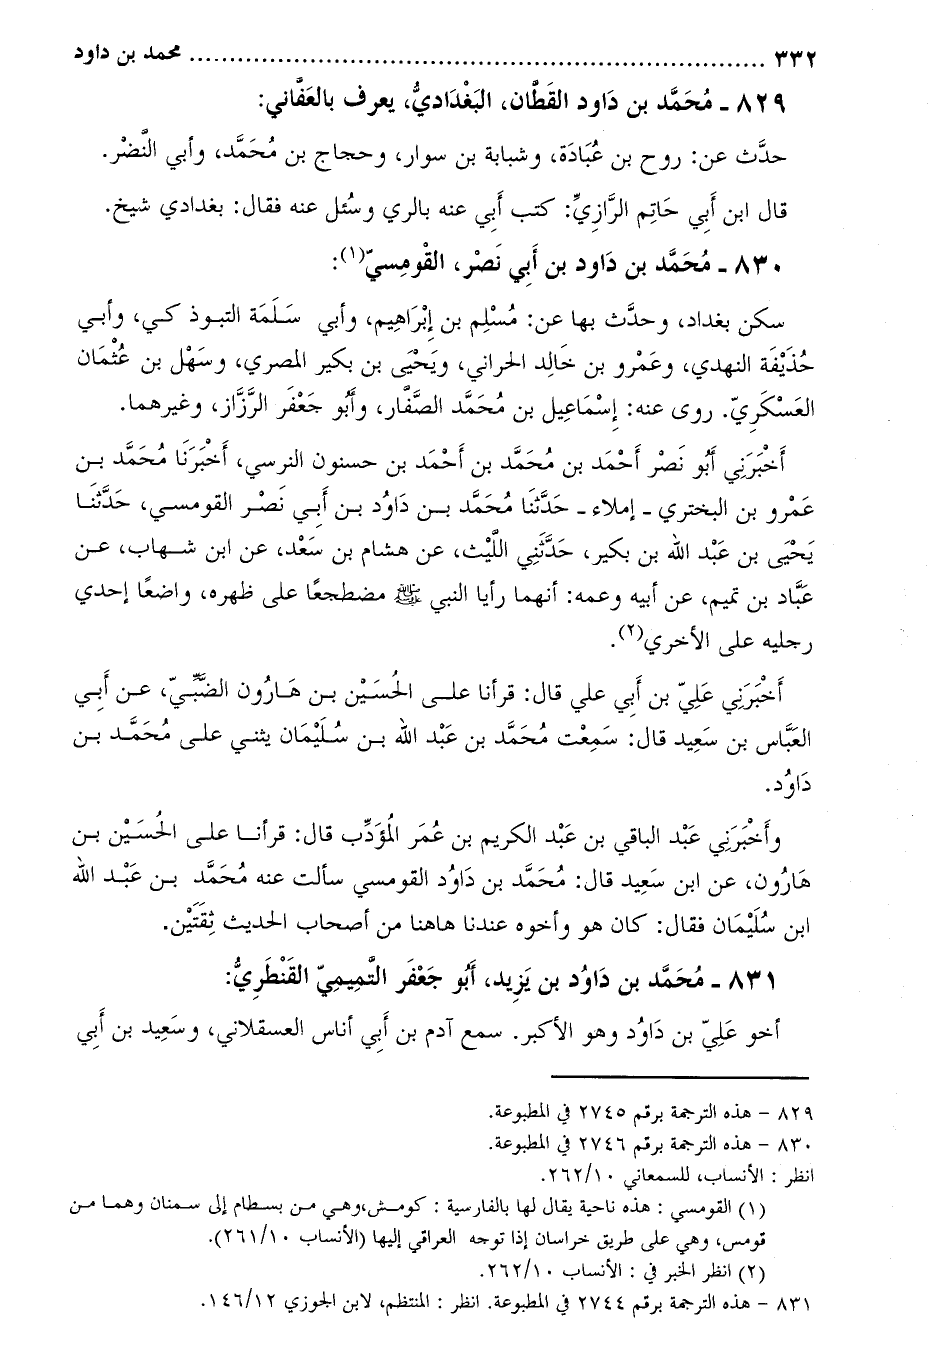 ٣٣٢ ........................................................................ محمد بن داود
٨٢٩ ـ مُحَمَّد بن دَاود القَطَّان، البَغْدَاديُّ، يعرف بالعَفَّاني:
حدَّث عن: روح بن عُبَادَة، وشبابة بن سوار، وحجاج بن مُحَمَّد، وأبي النَّضْر.
قال ابن أَبي حَاتِم الرَّازِيِّ: كتب أَبي عنه بالري وسُئل عنه فقال: بغدادي شيخ.
٨٣٠ ـ مُحَمَّد بن دَاود بن أَبي نَصْر، القَوْمِسيّ(١):
سكن بغداد، وحدَّث بها عن: مُسْلِم بن إِبْرَاهِيم، وأبي سَلَمَة التبوذ كي، وأبي
حُذَيْفَة النهدي، وعَمْرو بن خَالِد الحراني، ويَحْيَى بن بكير المصري، وسَهْل بن عُثْمَان
العَسْكَرِيّ. روى عنه: إِسْمَاعيل بن مُحَمَّد الصَّفَّار، وأَبُو جَعْفَر الرَّزَّاز، وغيرهما.
أَخْبَرَنِي أَبُو نَصْر أَحْمَد بن مُحَمَّد بن أَحْمَد بن حسنون النرسي، أَخْبَرَنَا مُحَمَّد بن
عَمْرو بن البختري ـ إملاء ـ حَدَّثَنَا مُحَمَّد بن دَاوُد بن أَبي نَصْر القومسي، حَدَّثَنَا
يَحْيَى بن عَبْد الله بن بكير، حَدَّثَنِي اللَّيْث، عن هشام بن سَعْد، عن ابن شهاب، عن
عَبَّاد بن تميم، عن أبيه وعمه: أنهما رأيا النبي ﷺ مضطجعًا على ظهره، واضعًا إحدي
رجليه على الأخري(٢).
أَخْبَرَنِي عَلِيّ بن أَبي علي قال: قرأنا على الحُسَيْن بن هَارُون الضَّبِّيّ، عن أَبي
العَبَّاس بن سَعِيد قال: سَمِعْت مُحَمَّد بن عَبْد الله بن سُلَيْمَان يثني على مُحَمَّد بن
دَاوُد.
وأَخْبَرَنِي عَبْد الباقي بن عَبْد الكريم بن عُمَر المُؤَدِّب قال: قرأنا على الحُسَيْن بن
هَارُون، عن ابن سَعِيد قال: مُحَمَّد بن دَاوُد القومسي سألت عنه مُحَمَّد بن عَبْد الله
ابن سُلَيْمَان فقال: كان هو وأخوه عندنا هاهنا من أصحاب الحديث ثِقَتَيْن.
٨٣١ ـ مُحَمَّد بن دَاوُد بن يَزِيد، أَبُو جَعْفَر التَّمِيمِيّ القَنْطَرِيُّ:
أخو عَلِيّ بن دَاوُد وهو الأكبر. سمع آدم بن أَبي أناس العسقلاني، وسَعِيد بن أَبي
٨٢٩ – هذه الترجمة برقم ٢٧٤٥ في المطبوعة.
٨٣٠ – هذه الترجمة برقم ٢٧٤٦ في المطبوعة.
انظر : الأنساب، للسمعاني ٢٦٢/١٠.
(١) القومسي : هذه ناحية يقال لها بالفارسية : كومش،وهي من بسطام إلى سمنان وهما من
قومس، وهي على طريق خراسان إذا توجه العراقي إليها (الأنساب ٢٦١/١٠).
(٢) انظر الخبر في : الأنساب ٢٦٢/١٠.
٨٣١ – هذه الترجمة برقم ٢٧٤٤ في المطبوعة. انظر : المنتظم، لابن الجوزي ١٤٦/١٢.